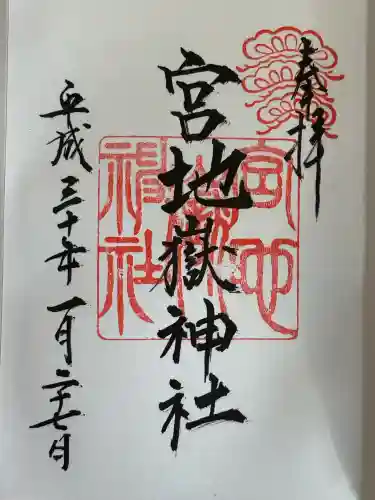 奉拝
宮地嶽神社
平成三十年一月二十七日
宮地
嶽
神社